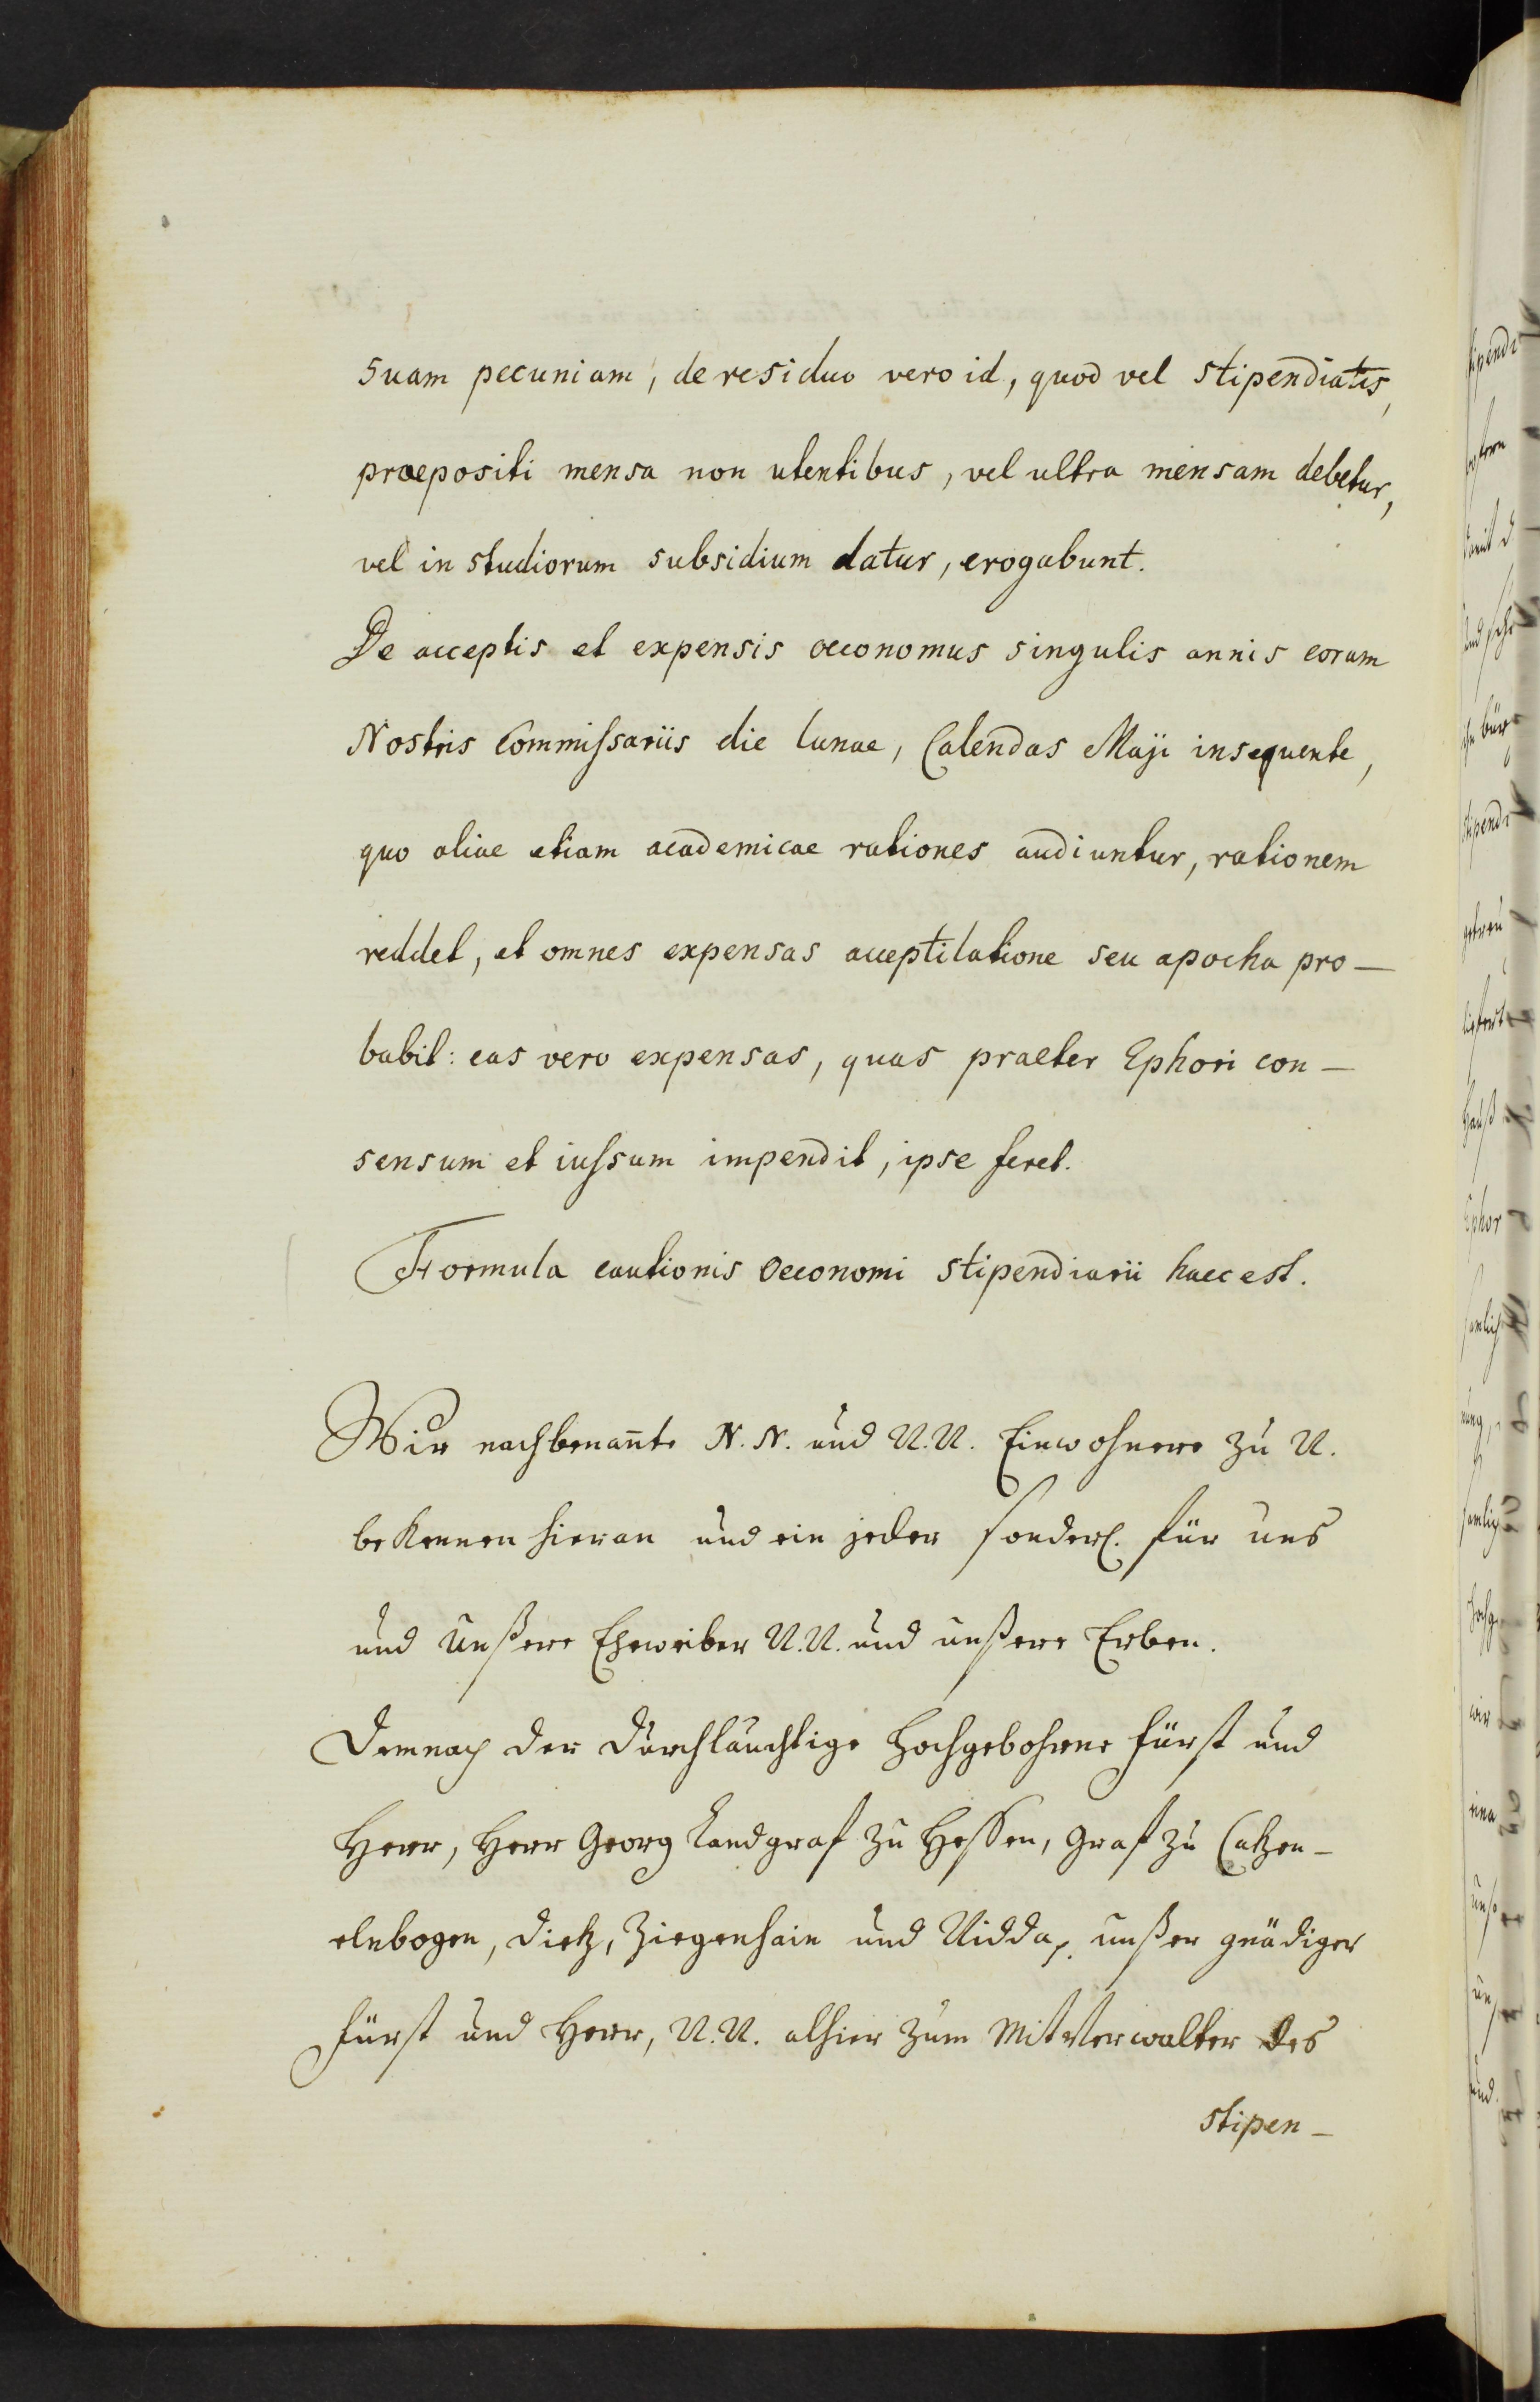 suam pecuniam, de residuo vero id, quod vel stipendiatis,
praepositi mensa non utentibus, vel ultra mensam debetur,
vel in studiorum subsidium datur, erogabunt.
De acceptis et expensis oeconomus singulis annis coram
Nostris Commissariis die lunae, Calendas Maji insequente,
quo aliae etiam academicae rationes audiuntur, rationem
reddet, et omnes expensas acceptilatione seu apocha pro-
babit: eas vero expensas, quas praeter Ephori con-
sensum et iussum impendit, ipse feret.
Formula cautionis Oeconomi stipendiarii haec est.
Wir nachbenan̄te N. N. und N. N. Einwohnere zu N.
bekennen hieran und ein jeder sonderl. für uns
und unßere Eheweiber N. N. und unßere Erben.
Demnach der Durchlauchtige Hochgebohrne Fürst und
Herr, Herr Georg Landgraf zu Hessen, Graf zu Catzen-
elnbogen, Dietz, Ziegenhain und Nidda p. unßer gnädiger
Fürst und Herr, N. N. alhier zum Mitverwalter des
stipen-